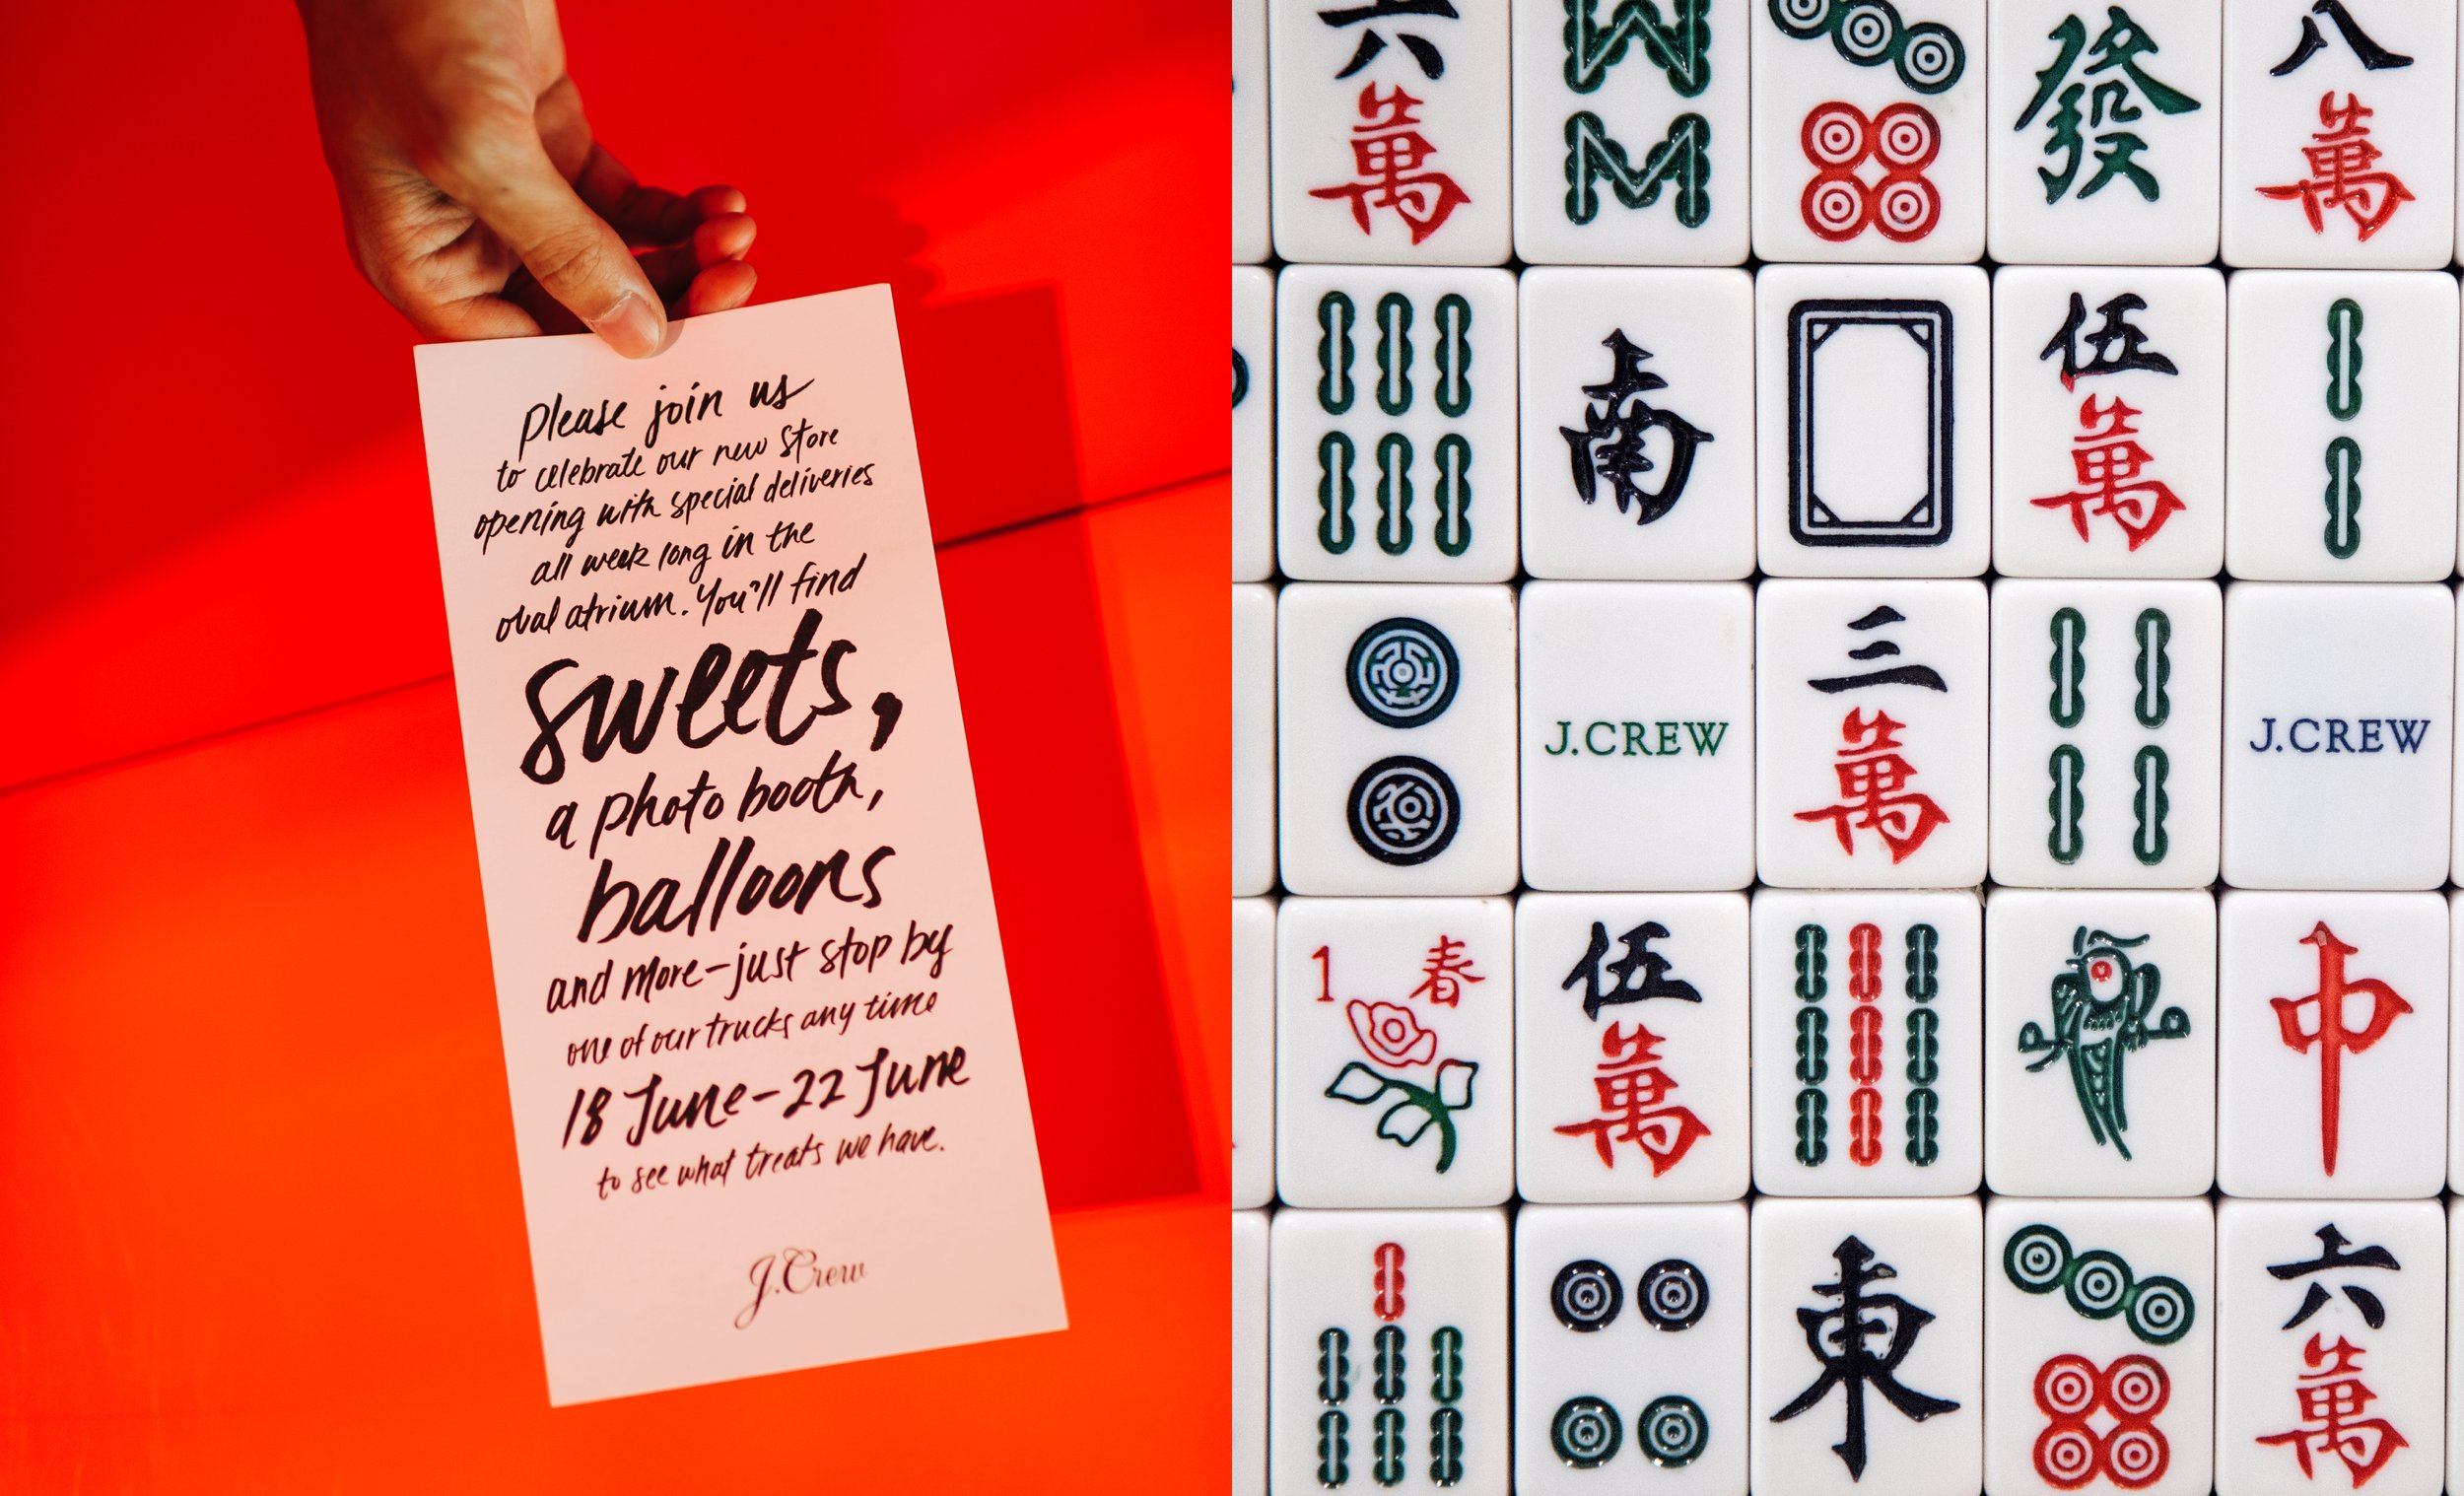 Please join us
to celebrate our new store
opening with special deliveries
all week long in the
oval atrium. You'll find
sweets,
a photo booth,
balloons
and more-just stop by
one of our trucks any time
18 June-22 June
to see what treats we have.
J.Crew
六 發 八
萬 萬
南 伍
萬
三
J.CREW J.CREW
萬
1 春 伍 中
萬
東 六
萬